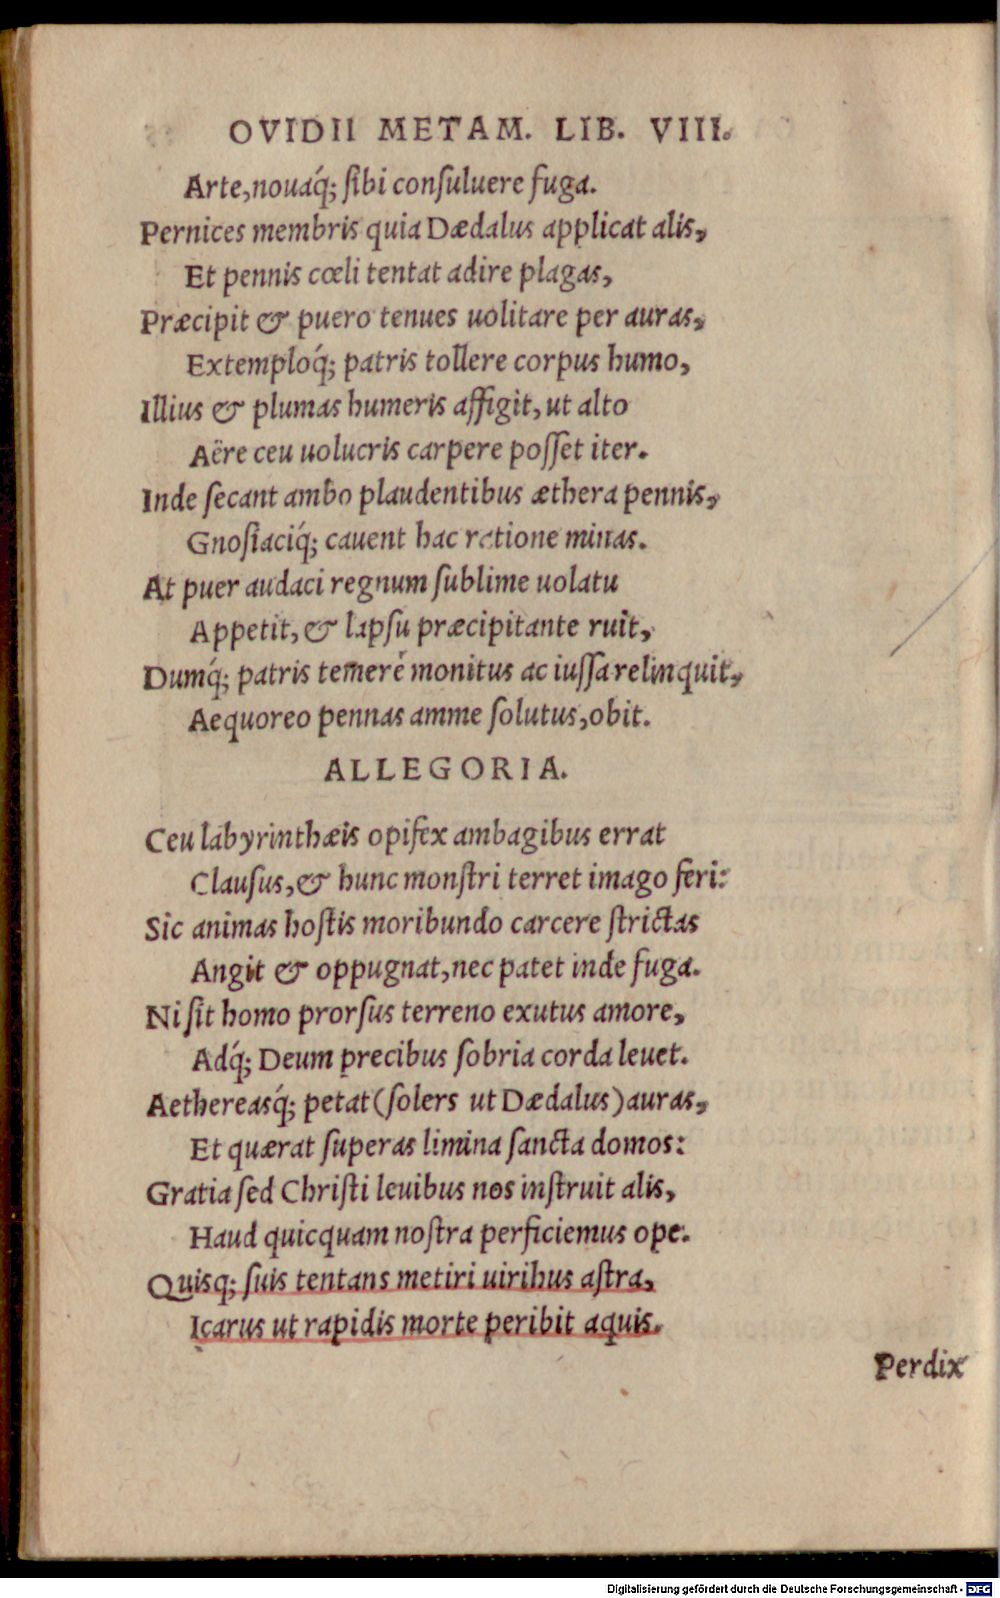 OVIDII METAM. LIB. VIII.
Arte, nouaq́; ſibi conſuluere fuga.
Pernices membris quia Dædalus applicat alis,
Et pennis cœli tentat adire plagas,
Præcipit & puero tenues uolitare per auras,
Extemploq́; patris tollere corpus humo,
Illius & plumas humeris affigit, ut alto
Aëre ceu uolucris carpere poſſet iter.
Inde ſecant ambo plaudentibus æthera pennis,
Gnoſiaciq́; cauent hac ratione minas.
At puer audaci regnum ſublime uolatu
Appetit, & lapſu præcipitante ruit,
Dumq́; patris temerè monitus ac iuſſa relinquit,
Aequoreo pennas amme ſolutus, obit.
ALLEGORIA.
Ceu labyrinthæis opifex ambagibus errat
Clauſus, & hunc monſtri terret imago feri:
Sic animas hoſtis moribundo carcere ſtrictas
Angit & oppugnat, nec patet inde fuga.
Ni ſit homo prorſus terreno exutus amore,
Adq́; Deum precibus ſobria corda leuet.
Aethereasq́; petat (ſolers ut Dædalus) auras,
Et quærat ſuperas limina ſancta domos:
Gratia ſed Chriſti leuibus nos inſtruit alis,
Haud quicquam noſtra perficiemus ope.
Quisq; ſuis tentans metiri uiribus aſtra,
Icarus ut rapidis morte peribit aquis.
Perdix
Digitalisierung gefördert durch die Deutsche Forschungsgemeinschaft - DFG